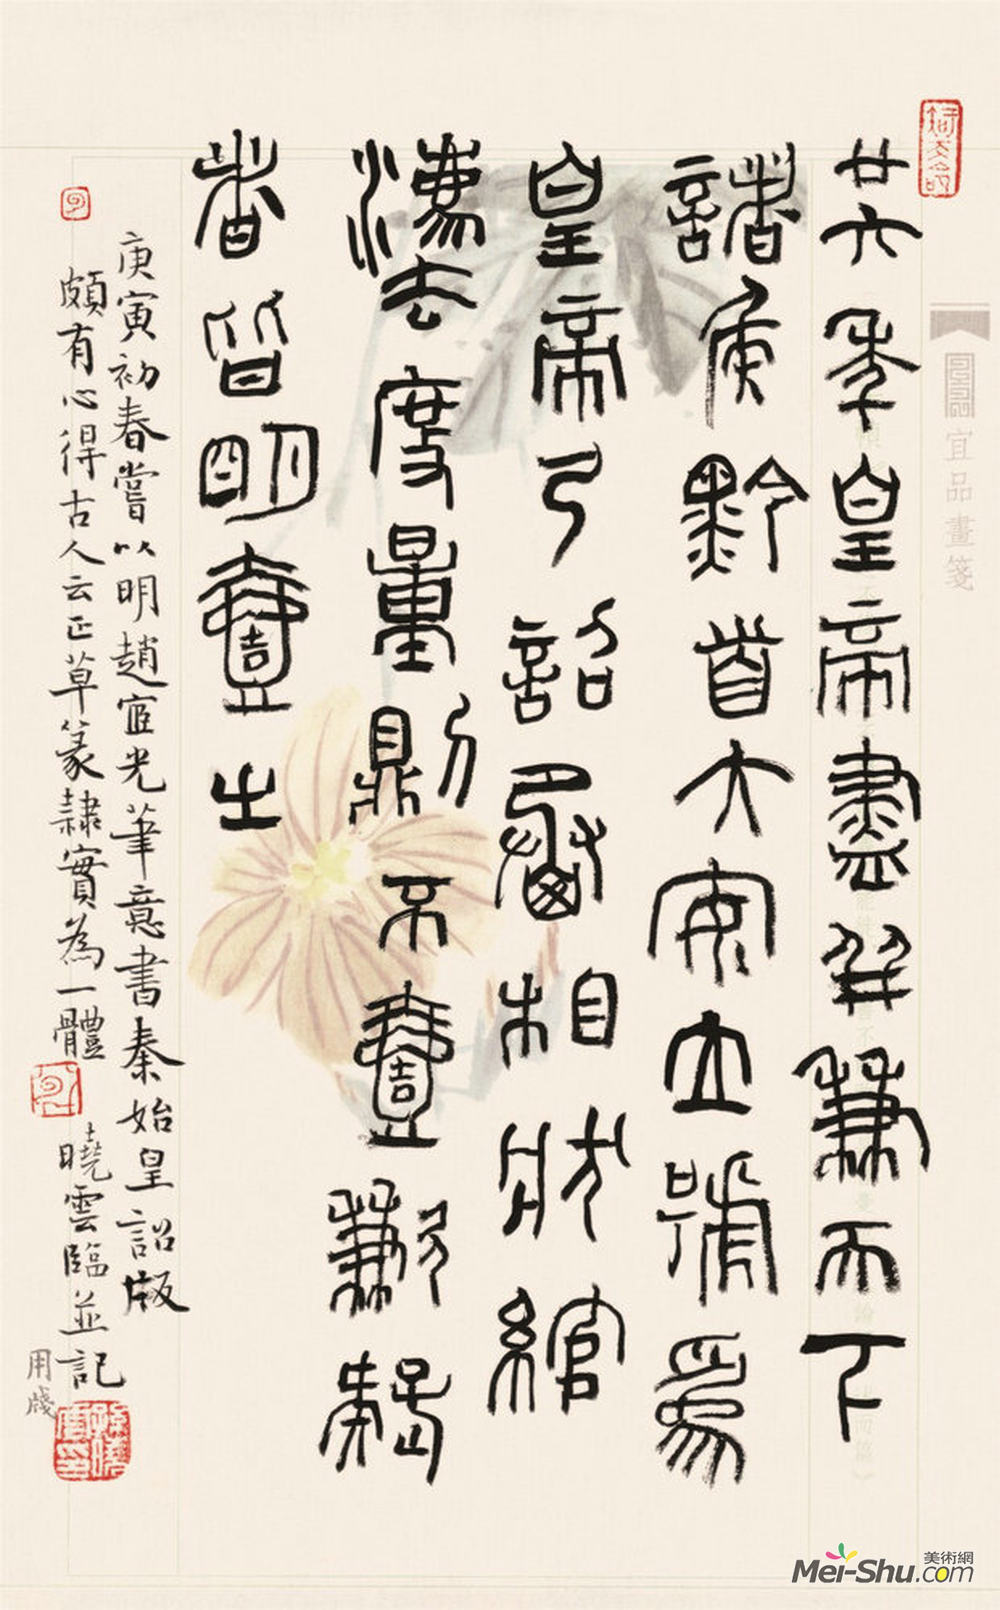 廿六年皇帝盡并兼天下
諸侯黔首大安立號為
皇帝乃詔丞相狀綰
灋度量則不壹歉疑
者皆明壹之
庚寅初春嘗以明趙宧光筆意書秦始皇詔版
頗有心得古人云正草篆隸實為一體 曉雲臨並記
用牋
宜品畫箋
美術網
Mei-Shu.com